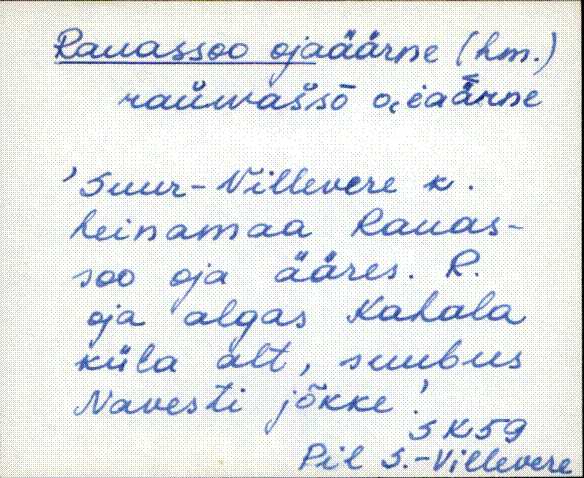 Rauassoo ojaäärne (hm.)
raŭwašsō o͔i̯aärne
'Suur-Villevere k.
heinamaa Rauas-
soo oja ääres. R.
oja algas Kahala
küla alt, suubus
Navesti jõkke'.
SK59
Pil S.-Villevere